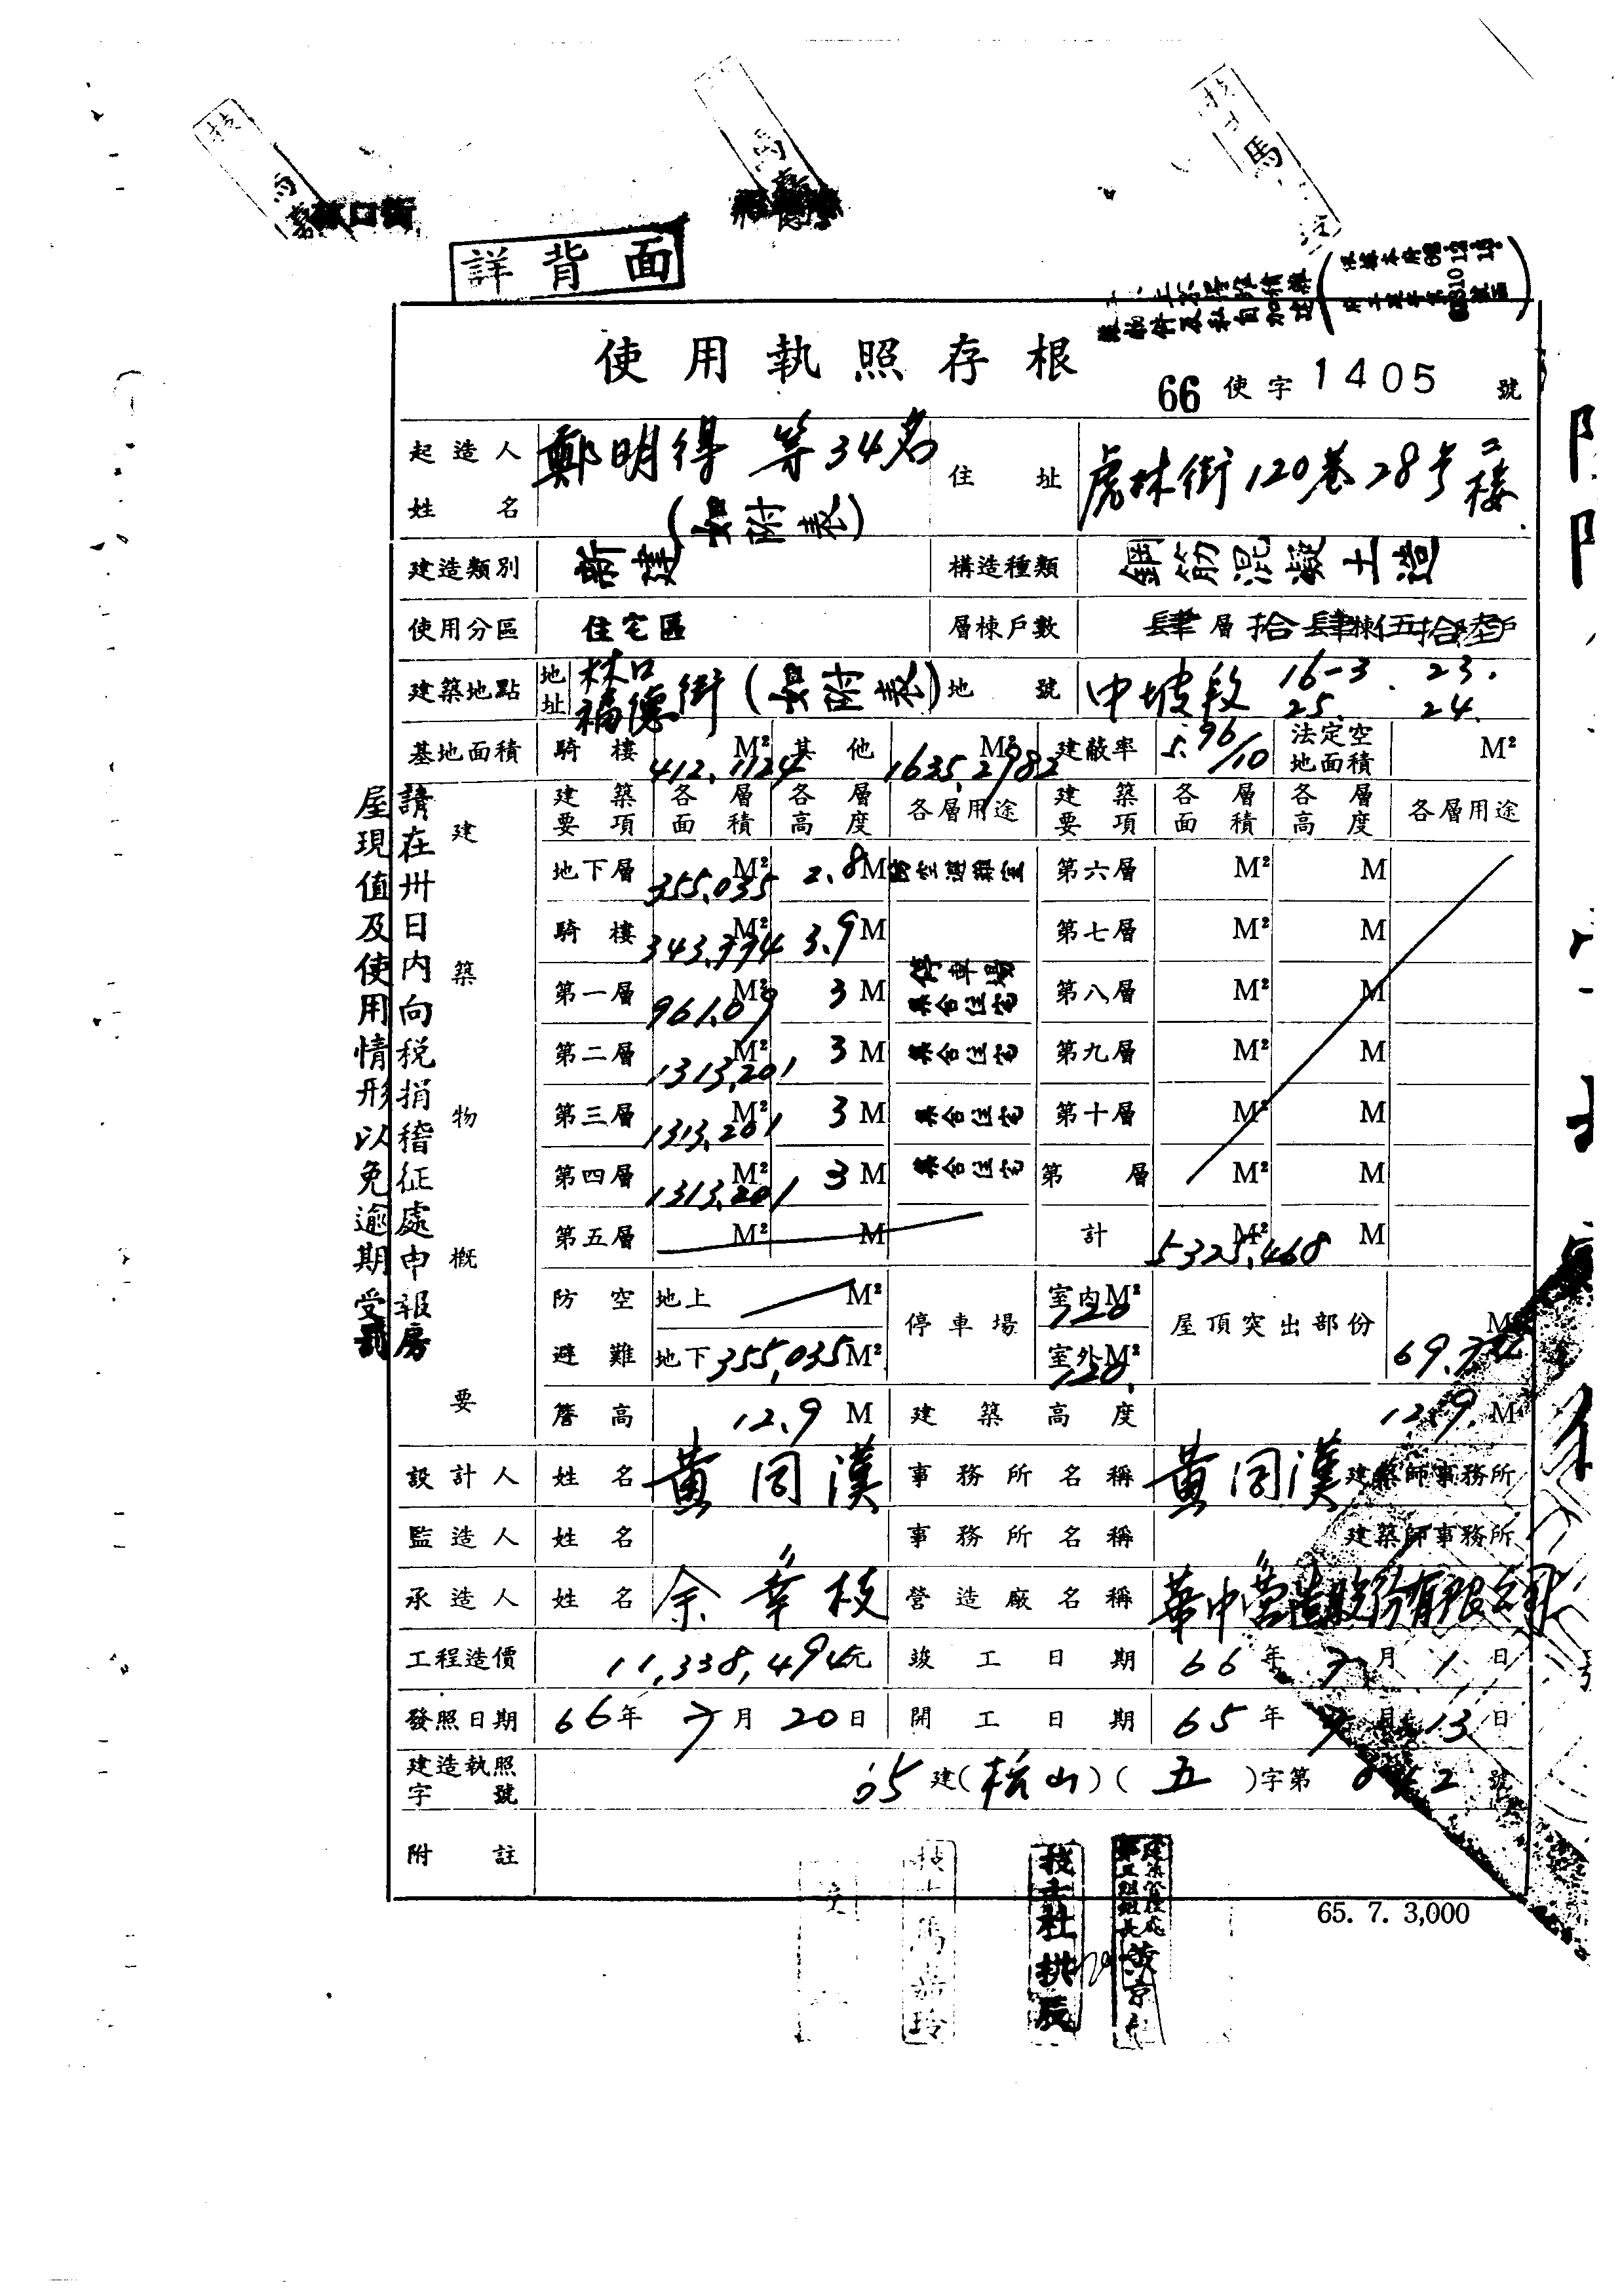 詳背面
使用執照存根
66 使字 1405 號
起造人姓名 鄭明得 等34名 (如附表) 住址 虎林街120巷28号二楼
建造類別 新建 構造種類 鋼筋混凝土造
使用分區 住宅區 層棟戶數 肆層拾肆棟伍拾陸戶
建築地點 地址 林口 福德街(如附表) 地號 中坡段 16-3. 23. 25. 24.
基地面積 騎樓 412.1124 M² 其他 1635.2982 M² 建蔽率 5.96/10 法定空地面積 M²
建築物概要
建築要項 各層面積 各層高度 各層用途 建築要項 各層面積 各層高度 各層用途
地下層 355.035 M² 2.8 M 防空避難室 第六層 M² M
騎樓 343.774 M² 3.9 M 第七層 M² M
第一層 961.09 M² 3 M 停車場 集合住宅 第八層 M² M
第二層 1313.201 M² 3 M 集合住宅 第九層 M² M
第三層 1313.201 M² 3 M 集合住宅 第十層 M² M
第四層 1313.201 M² 3 M 集合住宅 第 層 M² M
第五層 M² M 計 5325.468 M² M
防空避難 地上 M² 地下 355.035 M² 停車場 室內 120 M² 室外 120. M² 屋頂突出部份 M²
簷高 12.9 M 建築高度 12.9. M
設計人 姓名 黃同漢 事務所名稱 黃同漢 建築師事務所
監造人 姓名 〃 事務所名稱 〃 建築師事務所
承造人 姓名 余幸枝 營造廠名稱 華中營造股份有限公司
工程造價 11,338,494元 竣工日期 66年7月1日
發照日期 66年7月20日 開工日期 65年 月13日
建造執照字號 65建(松山)(五)字第 號
附註
請在卅日內向稅捐稽征處申報房
屋現值及使用情形以免逾期受罰
65. 7. 3,000
技士杜拱辰
技士馬 玲